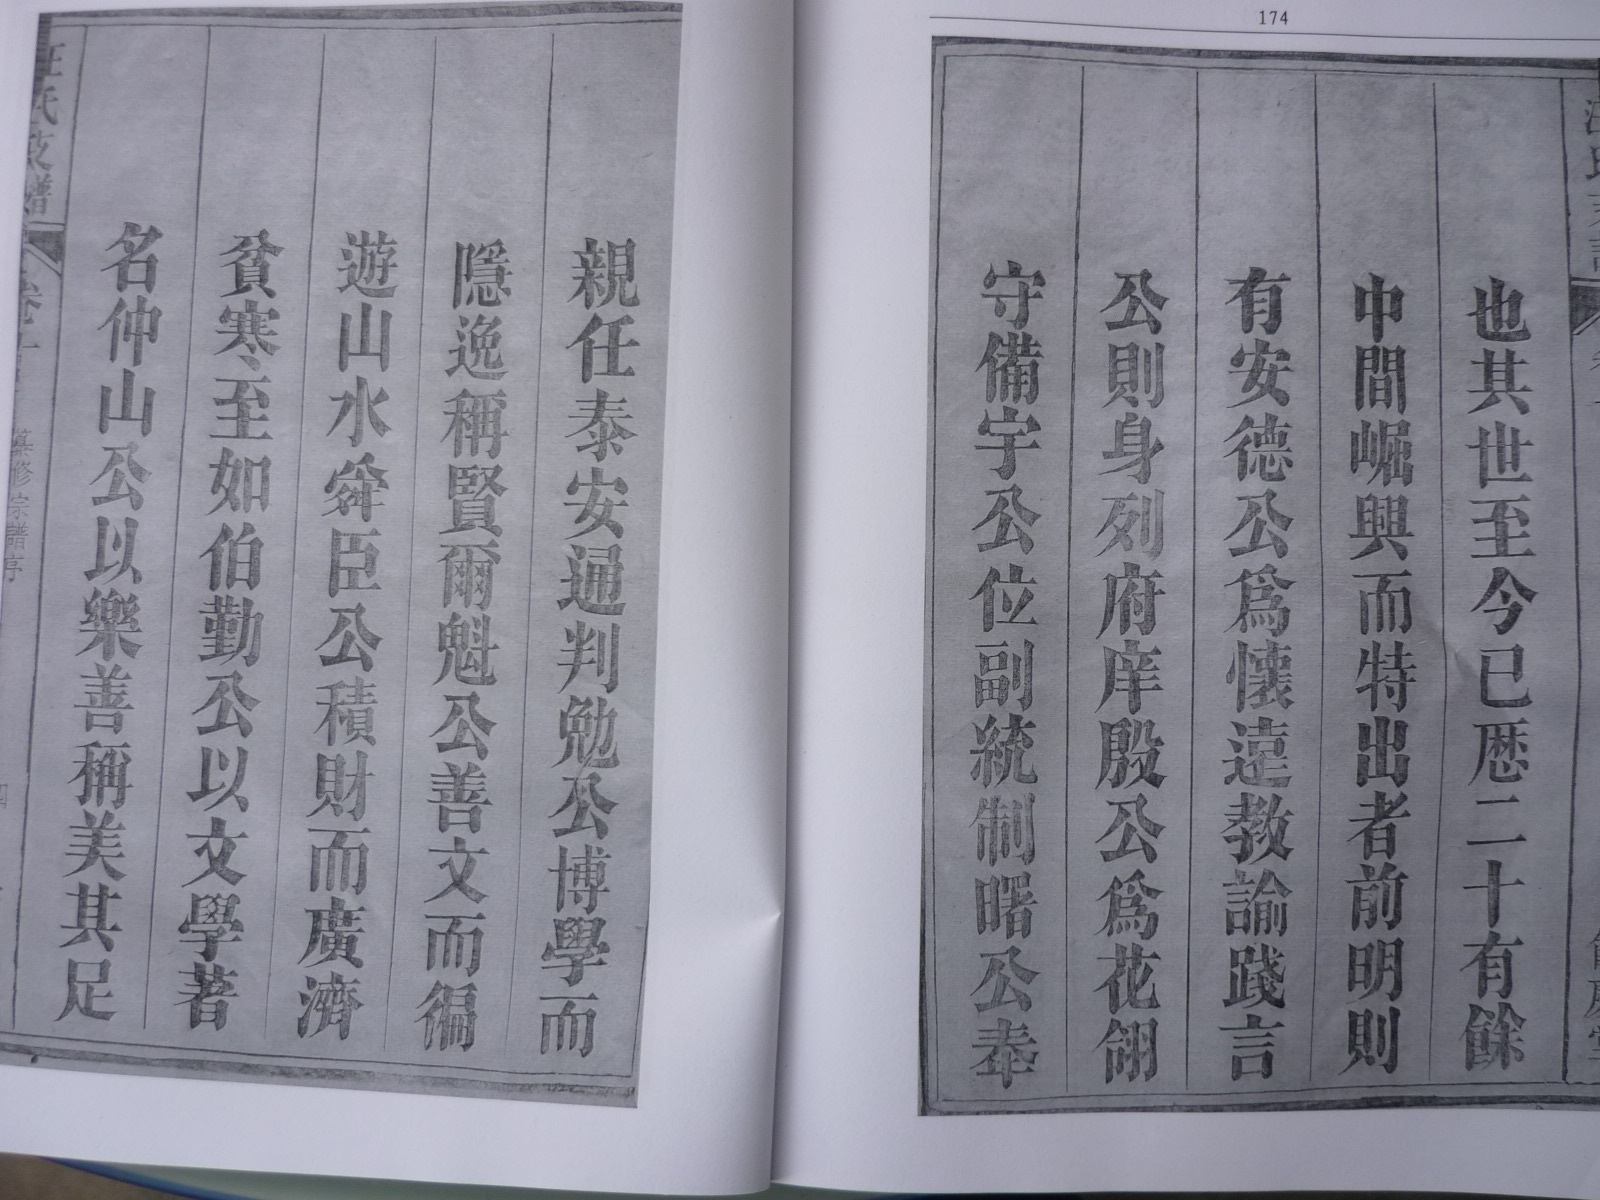 174
也其世至今已歴二十有餘
中間崛興而特出者前明則
有安德公爲懷遠教諭踐言
公則身列府庠殷公爲花翎
守備宇公位副統制曙公奉
親任泰安通判勉公博學而
隱逸稱賢爾魁公善文而徧
遊山水舜臣公積財而廣濟
貧寒至如伯勤公以文學著
名仲山公以樂善稱美其足
汪氏支譜
纂修宗譜序